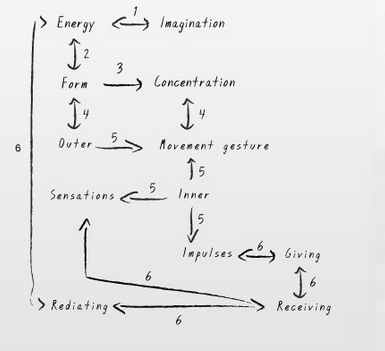 Energy 1 Imagination
2
Form 3 Concentration
4 4
6 Outer 5 Movement gesture
5
Sensations 5 Inner
5
Impulses 6 Giving
6 6
Rediating 6 Receiving